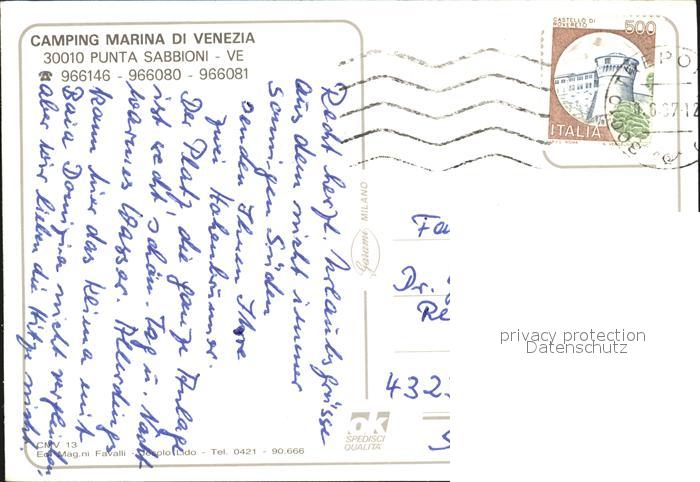 CAMPING MARINA DI VENEZIA
30010 PUNTA SABBIONI - VE
☎ 966146 - 966080 - 966081
Recht herzl. Urlaubsgrüsse
aus dem nicht immer
sonnigen Süden
senden Ihnen Ihre
zwei Hohenbrunner.
Der Platz, die ganze Anlage
ist recht schön. Tag u. Nacht
warmes Wasser. Allerdings
kann hier das Keima mit
Baia Domizia nicht vergleichen
aber wir lieben die Hitze nicht.
CASTELLO DI
ROVERETO
500
ITALIA
Garami MILANO
Fa
Dr.
Re
432
ok
SPEDISCI
QUALITÀ
CMV 13
Ed. Mag.ni Favalli - Jesolo Lido - Tel. 0421 - 90.666
privacy protection
Datenschutz